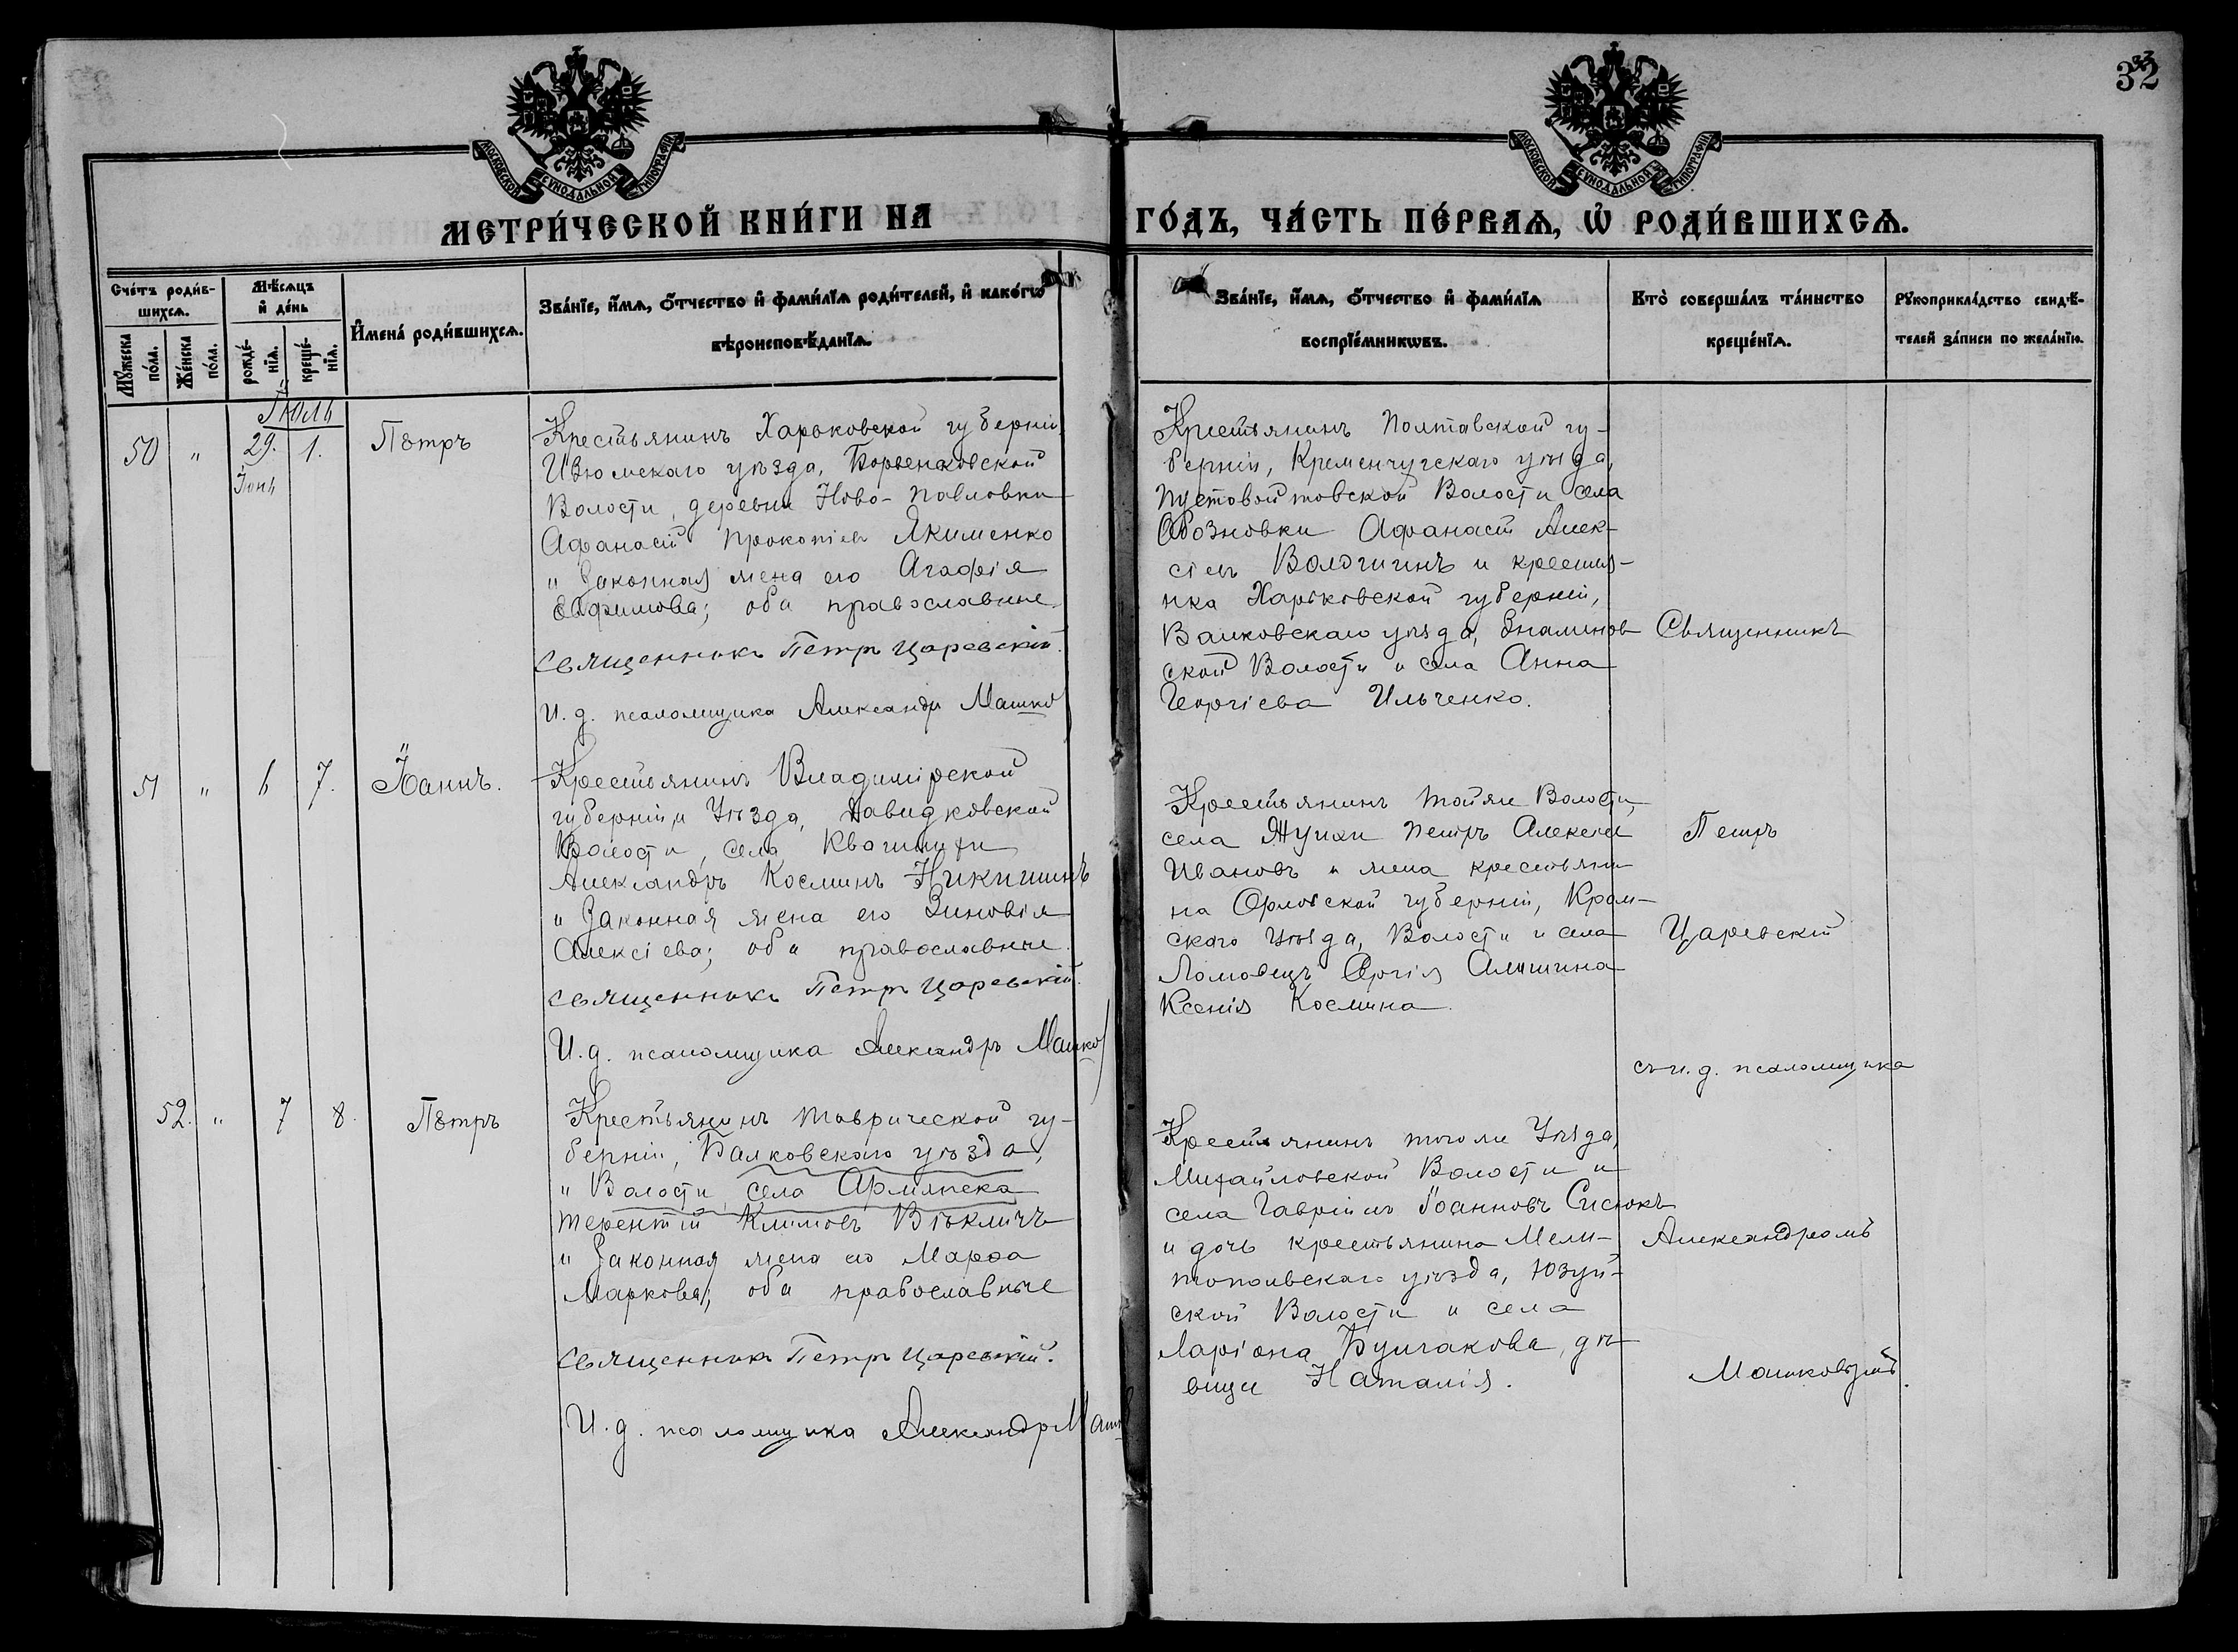 32
МОСКОВСКОЙ СѴНОДАЛЬНОЙ ТИПОГРАФІИ
МОСКОВСКОЙ СѴНОДАЛЬНОЙ ТИПОГРАФІИ
МЕТРИ́ЧЕСКОЙ КНИ́ГИ НА
ГО́ДЪ, ЧА́СТЬ ПЕ́РВАѦ, Ѡ҆ РОДИ́ВШИХСѦ.
Сче́тъ роди́в-
шихсѧ.
Мꙋ́жеска по́ла.
Же́нска по́ла.
Мѣ́сѧцъ
и҆ де́нь
рожде́-
нїѧ.
креще́-
нїѧ.
И҆мена̀ роди́вшихсѧ.
Зва́нїе, и҆́мѧ, ѻ҆́тчество и҆ фами́лїѧ роди́телей, и҆ како́гѡ
вѣроисповѣ́данїѧ.
Зва́нїе, и҆́мѧ, ѻ҆́тчество и҆ фами́лїѧ
воспрїе́мникѡвъ.
Кто̀ соверша́лъ та́инство
креще́нїѧ.
Рꙋкоприкла́дство свидѣ́-
телей за́писи по жела́нїю.
Іюль
50 " 29. 1. Пётръ
Іюнь
Крестьянинъ Харьковской губерніи
Изюмскаго уѣзда, Борвенковской
Волости, деревни Ново-Павловки
Афанасій Прокопіевъ Якименко
и Законная жена его Агафія
Евфимова; оба православные.
Священникъ Петръ Царевскій.
И. д. псаломщика Александръ Машко
Крестьянинъ Полтавской гу-
берніи, Кременчугскаго уѣзда,
Пустовойтовской Волости села
Обозновки Афанасій Алек-
сіевъ Волочигинъ и крестья-
нка Харьковской губерніи,
Валковскаго уѣзда, Знаменов-
ской Волости и села Анна
Георгіева Ильченко.
Священникъ
51 " 6 7. Іоаннъ.
Крестьянинъ Владимірской
губерніи и Уѣзда, Давидковской
Волости, села
Александръ Косминъ Никишинъ
и Законная жена его Зиновія
Алексіева; оба православные.
Священникъ Петръ Царевскій.
И. д. псаломщика Александръ Машко
Крестьянинъ той же Волости,
села Петръ Алексіевъ
Ивановъ и жена крестьяни-
на Орловской губерніи, Кром-
скаго Уѣзда, Волости и села
Ломовецъ Сергія Алешина
Ксенія Космина.
Петръ
Царевскій
съ и. д. псаломщика
52. " 7 8. Пётръ
Крестьянинъ Таврической гу-
берніи, Балковскаго уѣзда,
" Волости, села Армянска
Терентій Климовъ Вѣкличъ
и Законная жена его Марѳа
Маркова; оба православные
Священникъ Петръ Царевскій.
И. д. псаломщика Александръ Машко
Крестьянинъ того же Уѣзда,
Михайловской Волости и
села Гавріилъ Іоанновъ Сисюкъ
и дочь крестьянина Мели-
топольскаго уѣзда, Юзуй-
ской Волости и села
Ларіона Булгакова, дѣ-
вица Наталія.
Александромъ
Машковымъ.